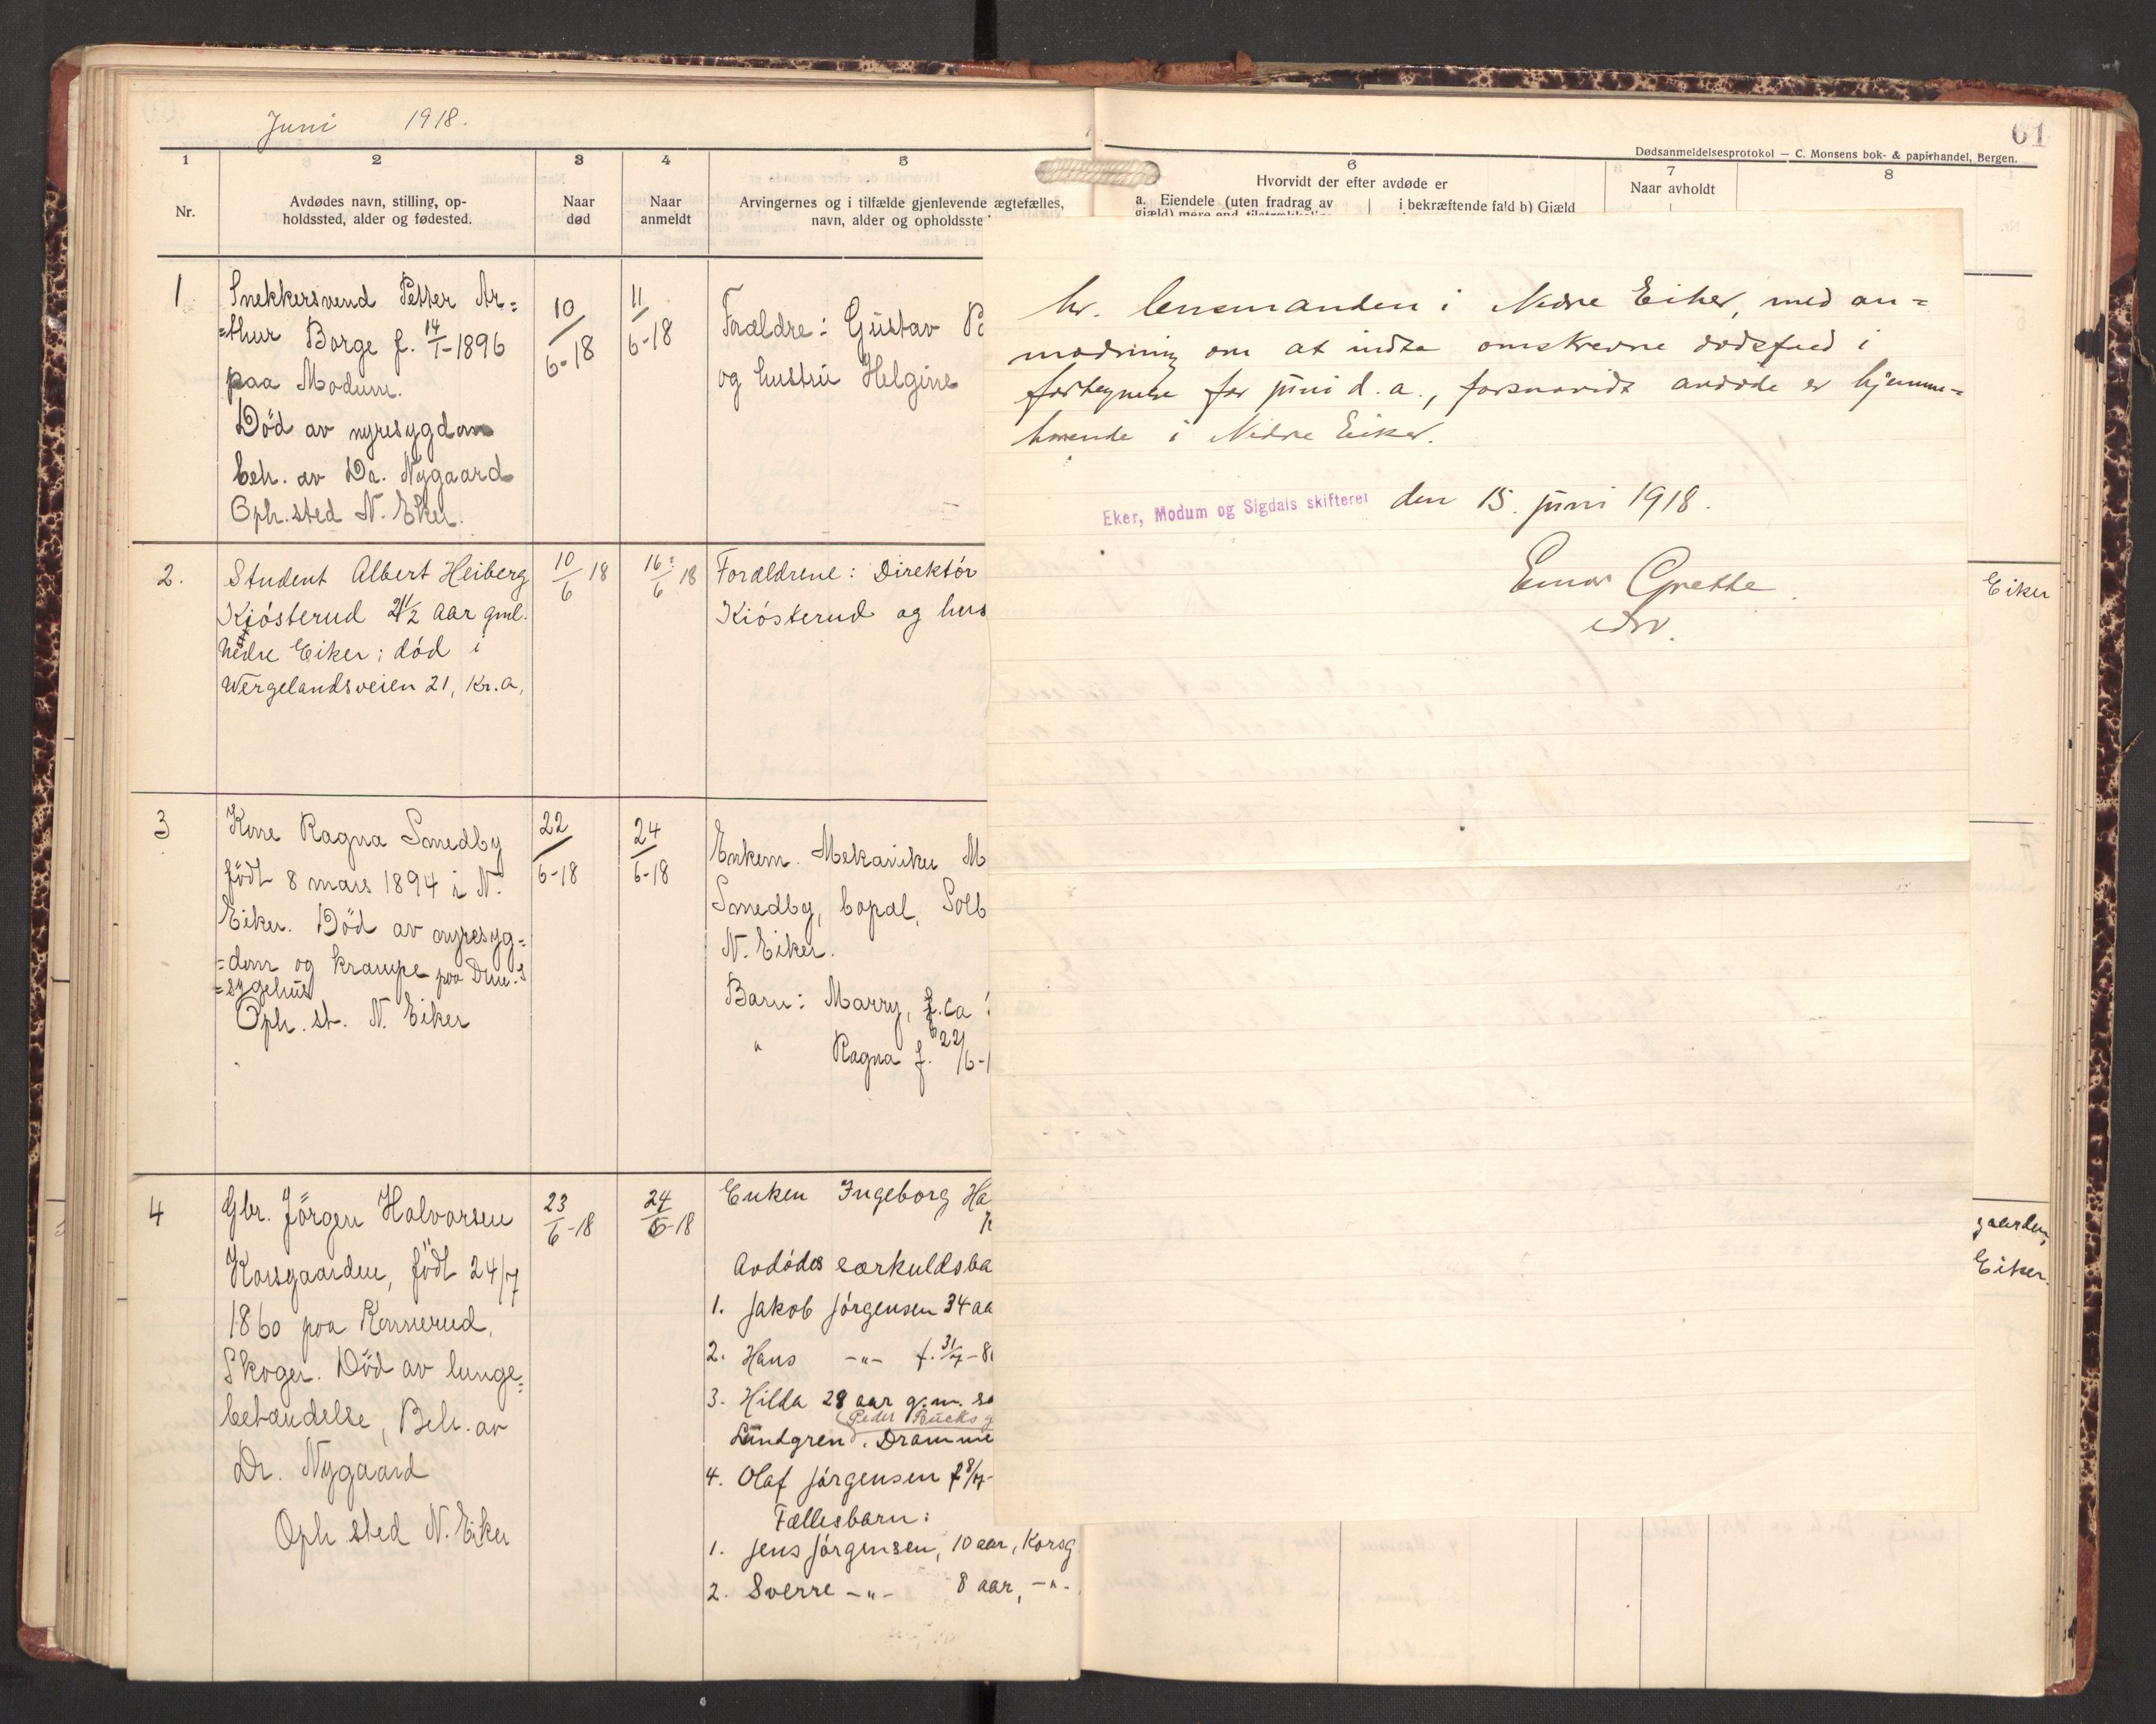 Juni 1918.
61
Dødsanmeldelsesprotokol — C. Monsens bok- & papirhandel, Bergen.
1 2 3 4 5 6 7 8
Nr.
Avdødes navn, stilling, op-
holdssted, alder og fødested.
Naar
død
Naar
anmeldt
Arvingernes og i tilfælde gjenlevende ægtefælles,
navn, alder og opholdsste
Hvorvidt der efter avdøde er
a. Eiendele (uten fradrag av
gjæld) mere end tilstrækkelig
i bekræftende fald b) Gjæld
Naar avholdt
1
Snekkersvend Petter Ar=
=thur Borge f. 14/1-1896
paa Modum.
Död av nyresygdom
beh. av Dr. Nygaard
Oph.sted N. Eker.
10/6-18
11/6-18
Forældre: Gustav
og hustru Helgine
2.
Student Albert Heiberg
Kiøsterud 21 1/2 aar gml.
Nedre Eiker; død i
Wergelandsveien 21, Kr.a,
10/6 18
16/6 18
Forældrene: Direktör
Kiøsterud og hus
Eiker
3
Kone Ragna Smedby
födt 8 mars 1894 i N.
Eiker. Död av nyresyg=
=dom og krampe paa Drm.s
=sygehus
Oph. st. N. Eiker
22/6-18
24/6-18
Enkem. Mekaniker M
Smedby, bopæl, Solb
N. Eiker.
Barn: Marry, f. ca
" Ragna f. 22/6-1
4
Gbr. Jörgen Halvorsen
Korsgaarden, födt 24/7
1860 paa Konnerud,
Skoger. Död av lunge=
betændelse, Beh. av
Dr. Nygaard
Oph sted N. Eiker
23/6-18
24/6-18
Enken Ingeborg Ha
Avdødes særkuldsba
1. Jakob Jørgensen 34 aa
2. Hans -"- f. 31/7-8
3. Hilda 28 aar g.m. sa
(Peder Bucks g
Lundgren, Dramme
4. Olaf Jørgensen f 8/7-
Fællesbarn:
1. Jens Jørgensen, 10 aar, Korsg
2. Sverre -"- 8 aar, -"-
gaarden,
Eiker.
hr. lensmanden i Nedre Eiker, med an=
modning om at indta omskrevne dødsfald i
fortegnelse for juni d.a., forsaavidt avdøde er hjemme=
hørende i Nedre Eiker.
Eker, Modum og Sigdals skifteret den 15. juni 1918.
Einar Grette